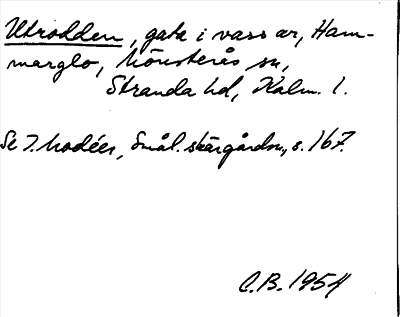 Utrodden, gata i vass ar, Ham-
marglo, Mönsterås sn,
Stranda hd, Kalm. l.
Se I. Modéer, Smål. skärgårdsn., s. 167.
C.B. 1954